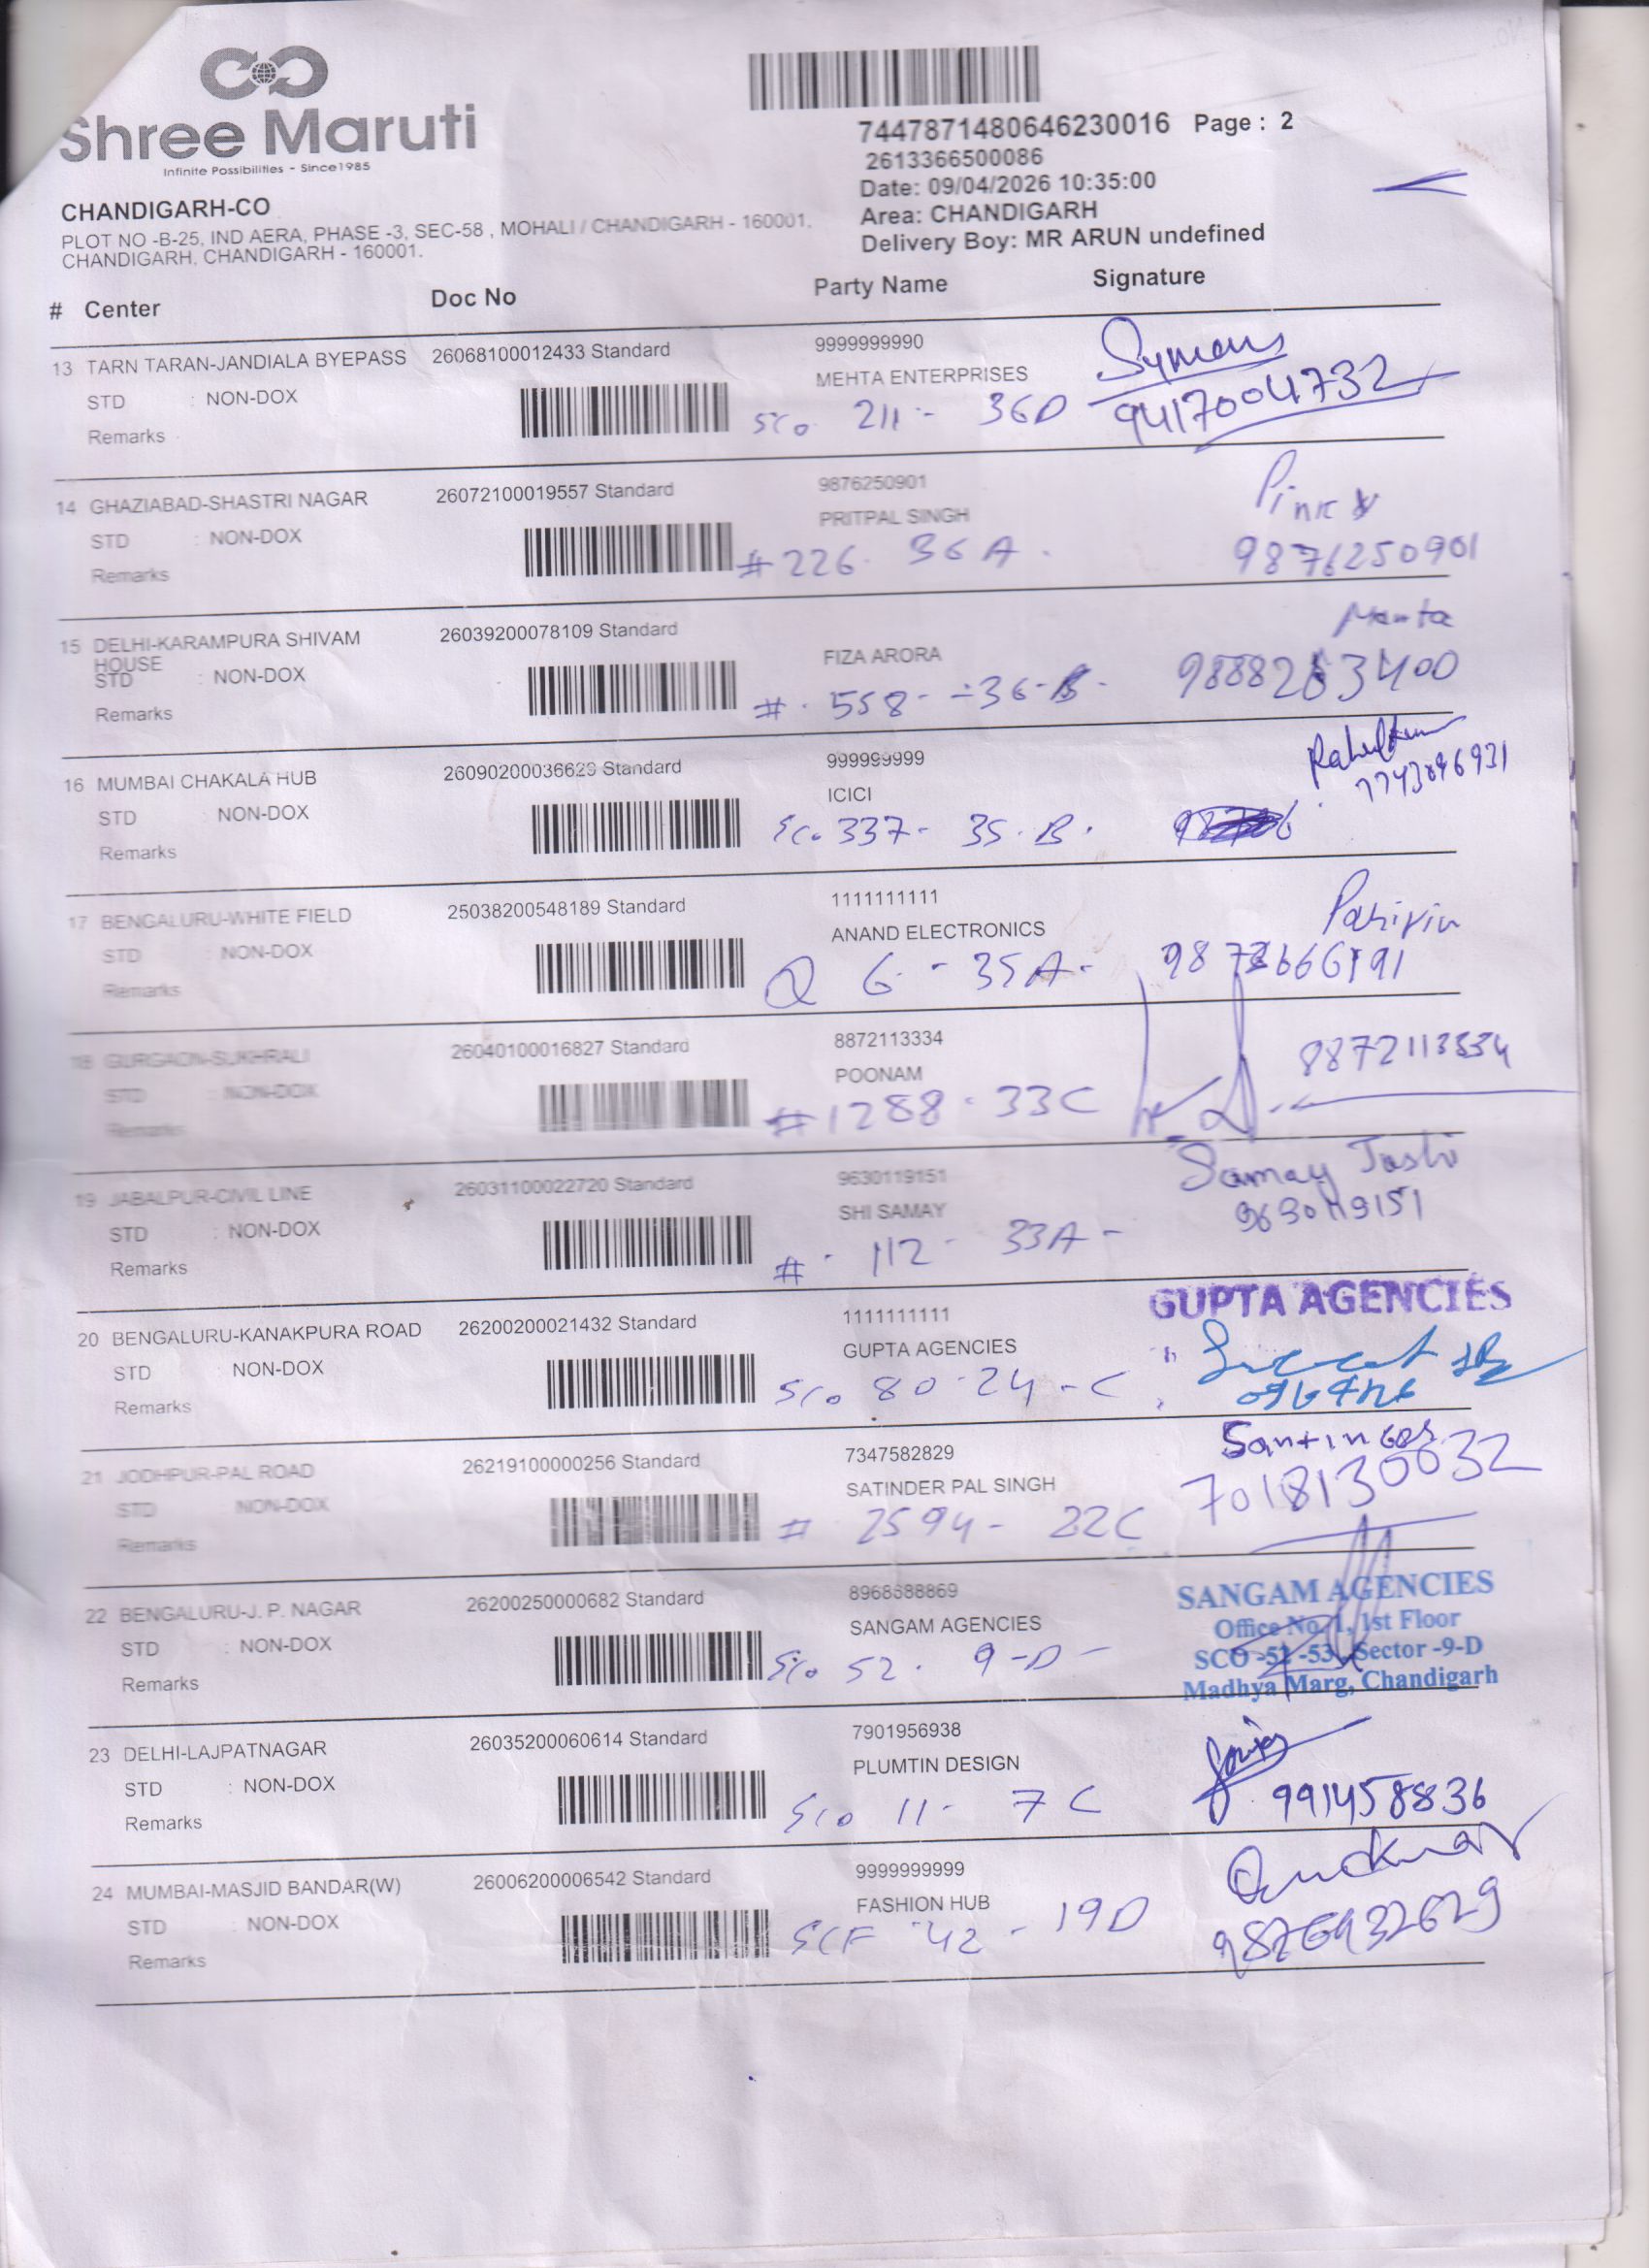 Shree Maruti
Infinite Possibilities - Since1985
7447871480646230016 Page : 2
2613366500086
Date: 09/04/2026 10:35:00
Area: CHANDIGARH
Delivery Boy: MR ARUN undefined
CHANDIGARH-CO
PLOT NO -B-25, IND AERA, PHASE -3, SEC-58 , MOHALI / CHANDIGARH - 160001,
CHANDIGARH, CHANDIGARH - 160001.
# Center Doc No Party Name Signature
13 TARN TARAN-JANDIALA BYEPASS 26068100012433 Standard 9999999990
STD : NON-DOX MEHTA ENTERPRISES
Remarks Sco 211 - 36D 9417004732
14 GHAZIABAD-SHASTRI NAGAR 26072100019557 Standard 9876250901
STD : NON-DOX PRITPAL SINGH
Remarks #226. 36 A . 9876250901
15 DELHI-KARAMPURA SHIVAM 26039200078109 Standard
HOUSE FIZA ARORA Mamta
STD : NON-DOX
Remarks # . 558 - - 36 - B - 9888263400
16 MUMBAI CHAKALA HUB 26090200036629 Standard 999999999
STD NON-DOX ICICI
Remarks Sco 337 - 35 . B .
17 BENGALURU-WHITE FIELD 25038200548189 Standard 1111111111
STD : NON-DOX ANAND ELECTRONICS
Remarks 6 - 35A -
18 GURGAON-SUKHRALI 26040100016827 Standard 8872113334
STD : NON-DOX POONAM
Remarks #1288 - 33C
19 JABALPUR-CIVIL LINE 26031100022720 Standard 9630119151
STD : NON-DOX SHI SAMAY
Remarks # - 112 - 33A - Samay Joshi
9630119151
20 BENGALURU-KANAKPURA ROAD 26200200021432 Standard 1111111111 GUPTA AGENCIES
STD NON-DOX GUPTA AGENCIES
Remarks Sco 80 - 24 - C
21 JODHPUR-PAL ROAD 26219100000256 Standard 7347582829
STD NON-DOX SATINDER PAL SINGH
Remarks # 2594 - 22C 7018130032
22 BENGALURU-J. P. NAGAR 26200250000682 Standard 8968688869
STD : NON-DOX SANGAM AGENCIES
Remarks Sco 52 . 9 - D -
SANGAM AGENCIES
Office No. 1, 1st Floor
SCO -52 -53, Sector -9-D
Madhya Marg, Chandigarh
23 DELHI-LAJPATNAGAR 26035200060614 Standard 7901956938
STD : NON-DOX PLUMTIN DESIGN
Remarks Sco 11 - 7 C 991458836
24 MUMBAI-MASJID BANDAR(W) 26006200006542 Standard 9999999999
STD : NON-DOX FASHION HUB
Remarks SCF 42 - 19D 9876932629